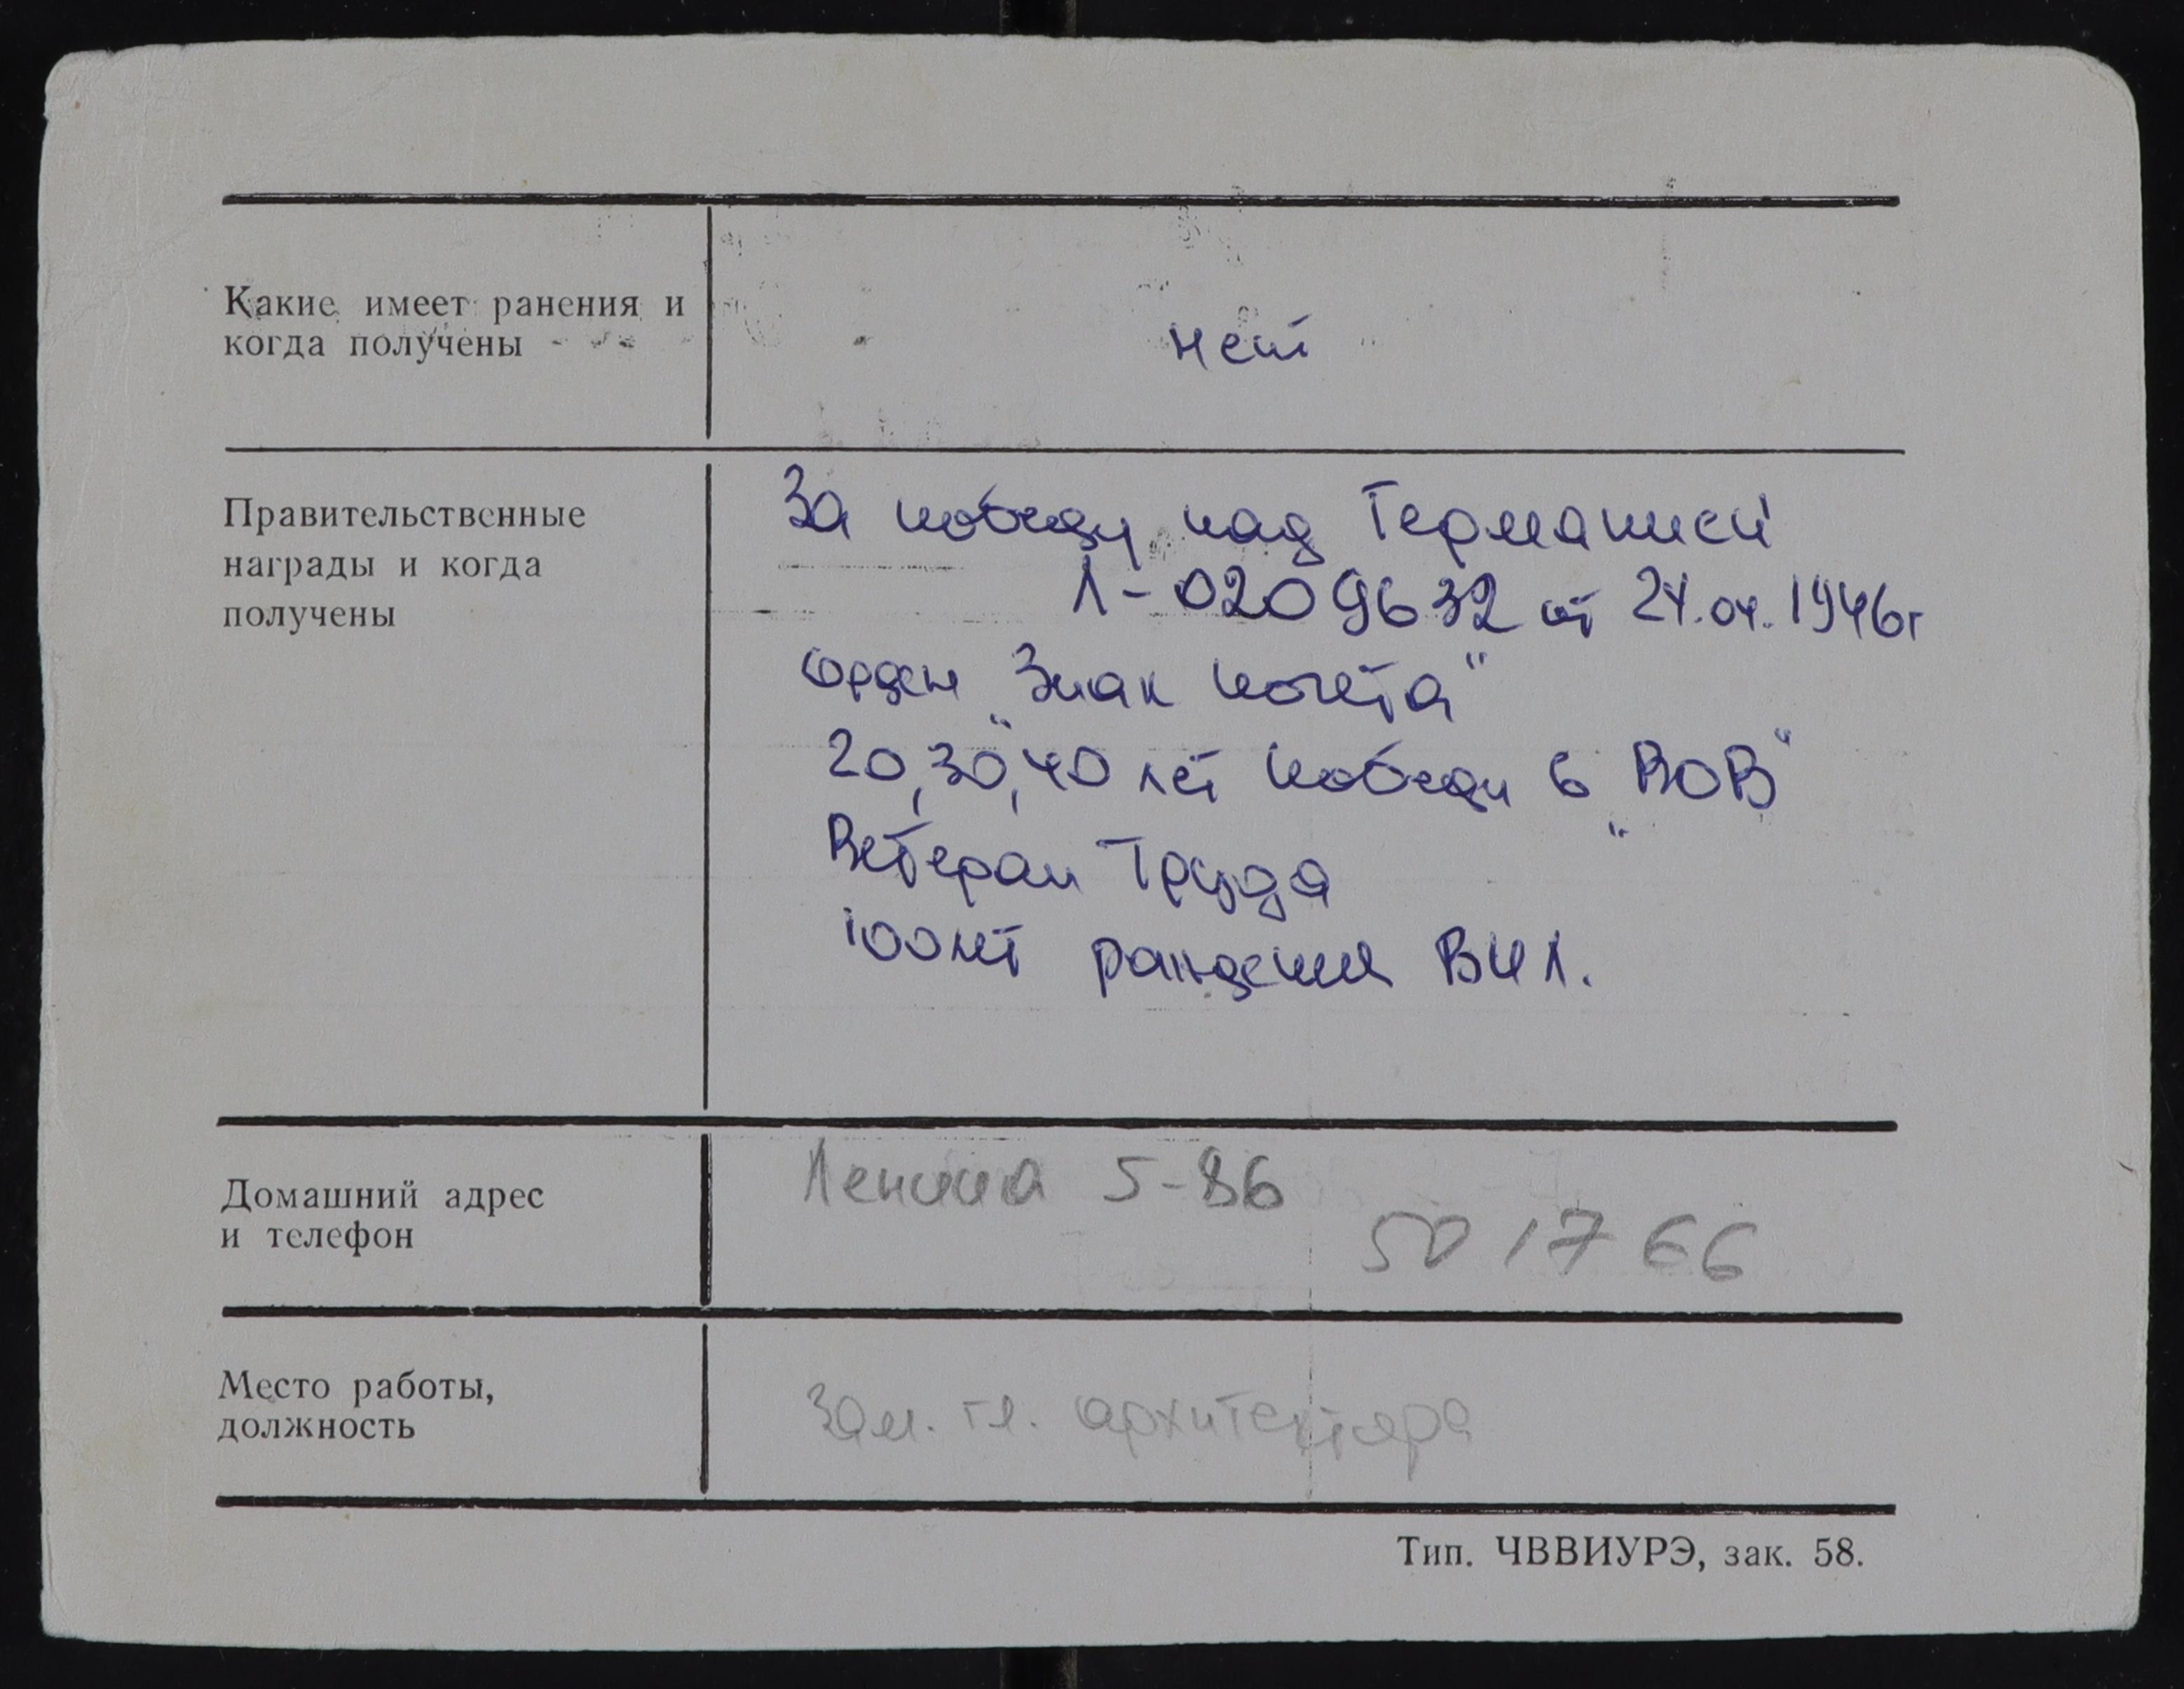 Какие имеет ранения и
когда получены
нет
Правительственные
награды и когда
получены
За победу над Германией
Л-0209632 от 24.04.1946г
орден "Знак почета"
20,30,40 лет победы в "ВОВ"
Ветеран Труда"
100 лет рождения ВИЛ.
Домашний адрес
и телефон
Ленина 5-86
50 17 66
Место работы,
должность
Зам. гл. архитектора
Тип. ЧВВИУРЭ, зак. 58.